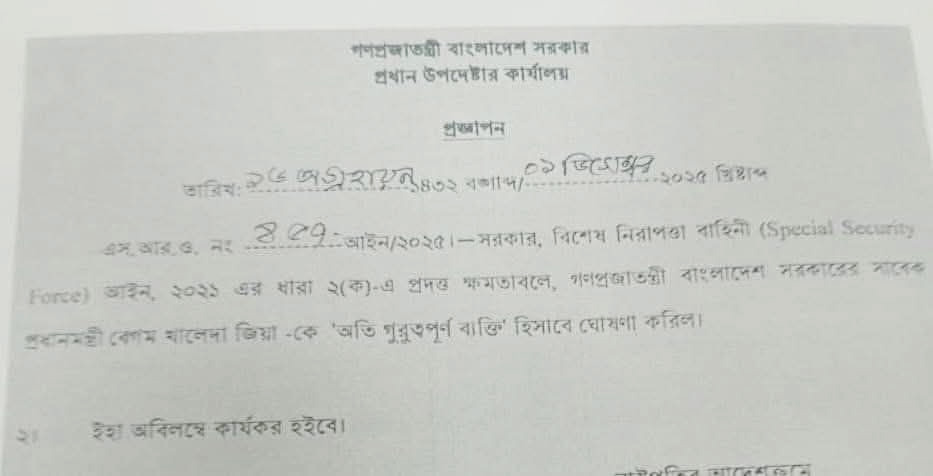 গণপ্রজাতন্ত্রী বাংলাদেশ সরকার
প্রধান উপদেষ্টার কার্যালয়
প্রজ্ঞাপন
তারিখ: ১৬ অগ্রহায়ণ ১৪৩২ বঙ্গাব্দ/ ০১ ডিসেম্বর ২০২৫ খ্রিষ্টাব্দ
এস. আর. ও. নং ৪৫৭-আইন/২০২৫।—সরকার, বিশেষ নিরাপত্তা বাহিনী (Special Security
Force) আইন, ২০২১ এর ধারা ২(ক)-এ প্রদত্ত ক্ষমতাবলে, গণপ্রজাতন্ত্রী বাংলাদেশ সরকারের সাবেক
প্রধানমন্ত্রী বেগম খালেদা জিয়া -কে 'অতি গুরুত্বপূর্ণ ব্যক্তি' হিসাবে ঘোষণা করিল।
২। ইহা অবিলম্বে কার্যকর হইবে।